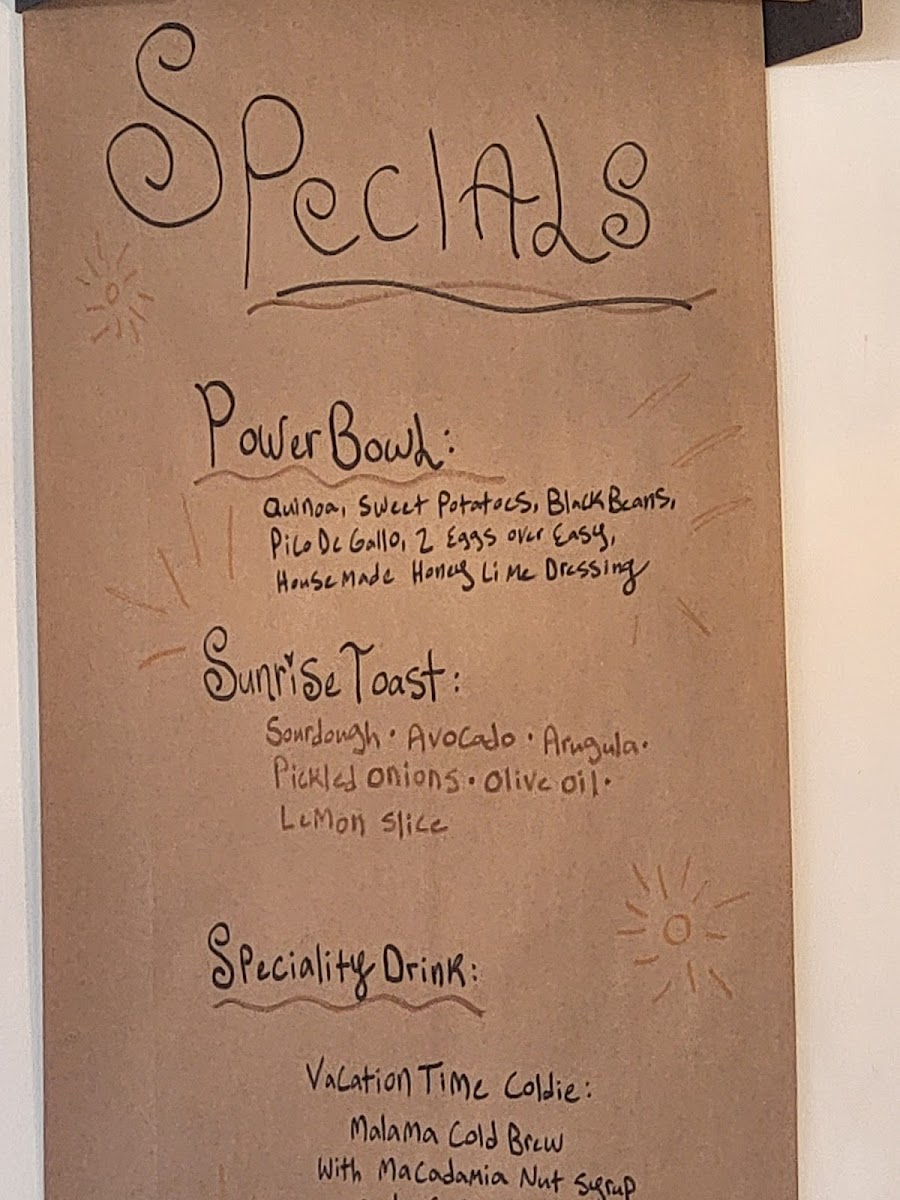 SPecIALS
Power Bowl:
Quinoa, Sweet Potatoes, Black Beans,
Pico De Gallo, 2 Eggs over Easy,
House Made Honey Lime Dressing
Sunrise Toast:
Sourdough · Avocado · Arugula ·
Pickled onions · Olive oil ·
Lemon slice
Speciality Drink:
Vacation Time Coldie:
Malama Cold Brew
With Macadamia Nut Syrup